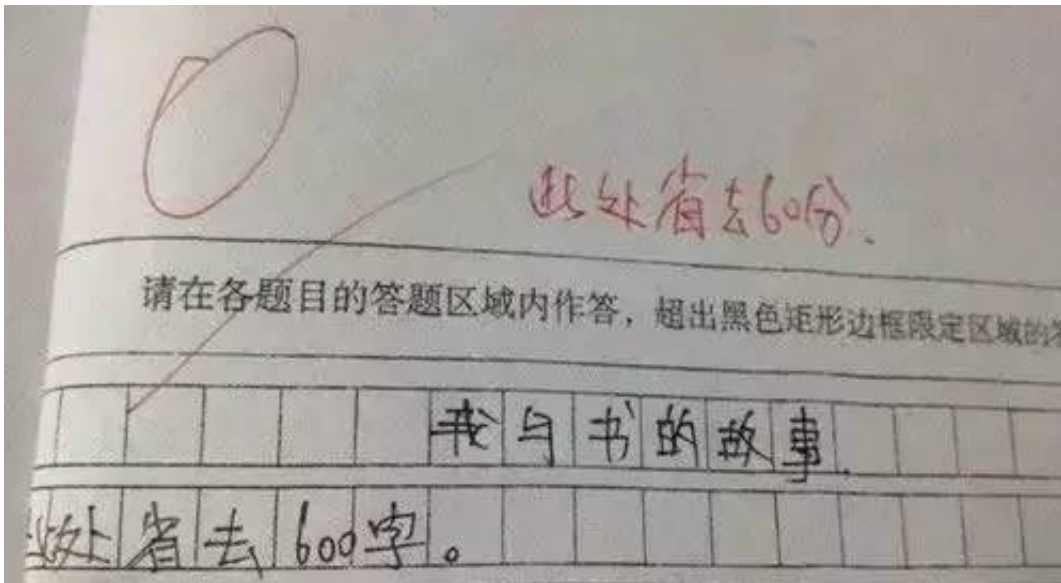 此处省去60分.
请在各题目的答题区域内作答，超出黑色矩形边框限定区域的
我与书的故事.
此处省去600字。